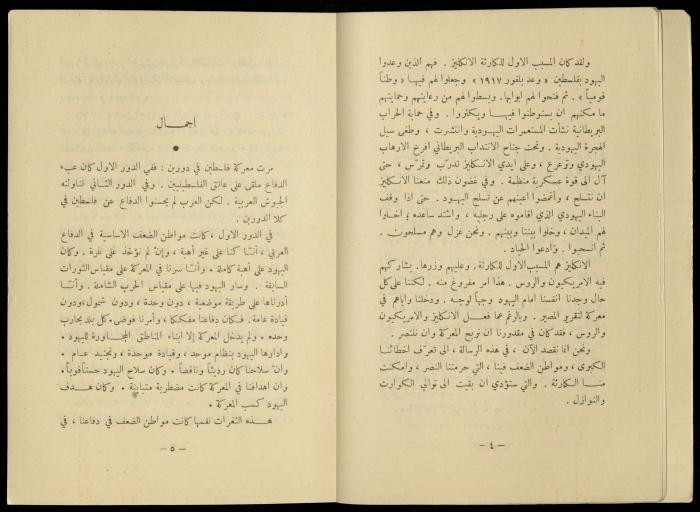 ولقد كان المسبب الاول للكارثة الانكليز . فهم الذين وعدوا
اليهود بفلسطين « وعد بلفور ١٩١٧ » وجعلوا لهم فيها « وطناً
قومياً » . ثم فتحوا لهم ابوابها . وبسطوا لهم من رعايتهم وحمايتهم
ما مكنهم ان يستوطنوا فيها ويكثروا . وفي حماية الحراب
البريطانية نشأت المستعمرات اليهودية وانتشرت ، وطغى سيل
الهجرة اليهودية . وتحت جناح الانتداب البريطاني افرخ الارهاب
اليهودي وترعرع ، وعلى ايدي الانكليز تدرّب وتمرّس ، حتى
آل الى قوة عسكرية منظمة . وفي غضون ذلك منعنا الانكليز
ان نتسلح ، وأغمضوا اعينهم عن تسلح اليهود . حتى اذا وقف
البناء اليهودي الذي اقاموه على رجليه ، واشتد ساعده ؛ اخلوا
لهم الميدان ، وخلوا بيننا وبينهم . ونحن عزل وهم مسلحون .
ثم انسحبوا . وادعوا الحياد .
الانكليز هم المسبب الاول للكارثة . وعليهم وزرها . يشاركهم
فيه الاميريكيون والروس . هذا امر مفروغ منه . لكننا على كل
حال وجدنا انفسنا امام اليهود وجهاً لوجه . ودخلنا واياهم في
معركة لتقرير المصير . وبالرغم عما فعل الانكليز والاميريكيون
والروس ، فقد كان في مقدورنا ان نربح المعركة وان ننتصر .
ونحن انما نقصد الآن ، في هذه الرسالة ، الى تعرّف اخطائنا
الكبرى ، ومواطن الضعف فينا ، التي حرمتنا النصر ، وامكنت
منا الكارثة . والتي ستؤدي ان بقيت الى توالي الكوارث
والنوازل .
– ٤ –
اجمال
مرت معركة فلسطين في دورين : ففي الدور الاول كان عبء
الدفاع ملقى على عاتق الفلسطينيين . وفي الدور الثاني تناولته
الجيوش العربية . لكن العرب لم يحسنوا الدفاع عن فلسطين في
كلا الدورين .
في الدور الاول ، كانت مواطن الضعف الاساسية في الدفاع
العربي ، أننّا كنا على غير أهبة ، وإنْ لم نؤخذ على غرة . وكان
اليهود على أهبة كاملة . وأننّا سرنا في المعركة على مقياس الثورات
السابقة . وسار اليهود فيها على مقياس الحرب الشاملة . وأننّا
أدرناها على طريقة موضعية ، دون وحدة ، ودون شمول ، ودون
قيادة عامة . فكان دفاعنا مفككاً ، وأمرنا فوضى . كل بلد يحارب
وحده . ولم يدخل المعركة إلا ابناء المناطق المجاورة لليهود .
وادارها اليهود بنظام موحد ، وقيادة موحدة ، وتجنيد عام .
وانّ سلاحنا كان رديئاً وناقصاً . وكان سلاح اليهود حسناً قوياً .
وان اهدافنا في المعركة كانت مضطربة متباينة . وكان هدف
اليهود كسب المعركة .
هذه الثغرات نفسها كانت مواطن الضعف في دفاعنا ، في
– ٥ –